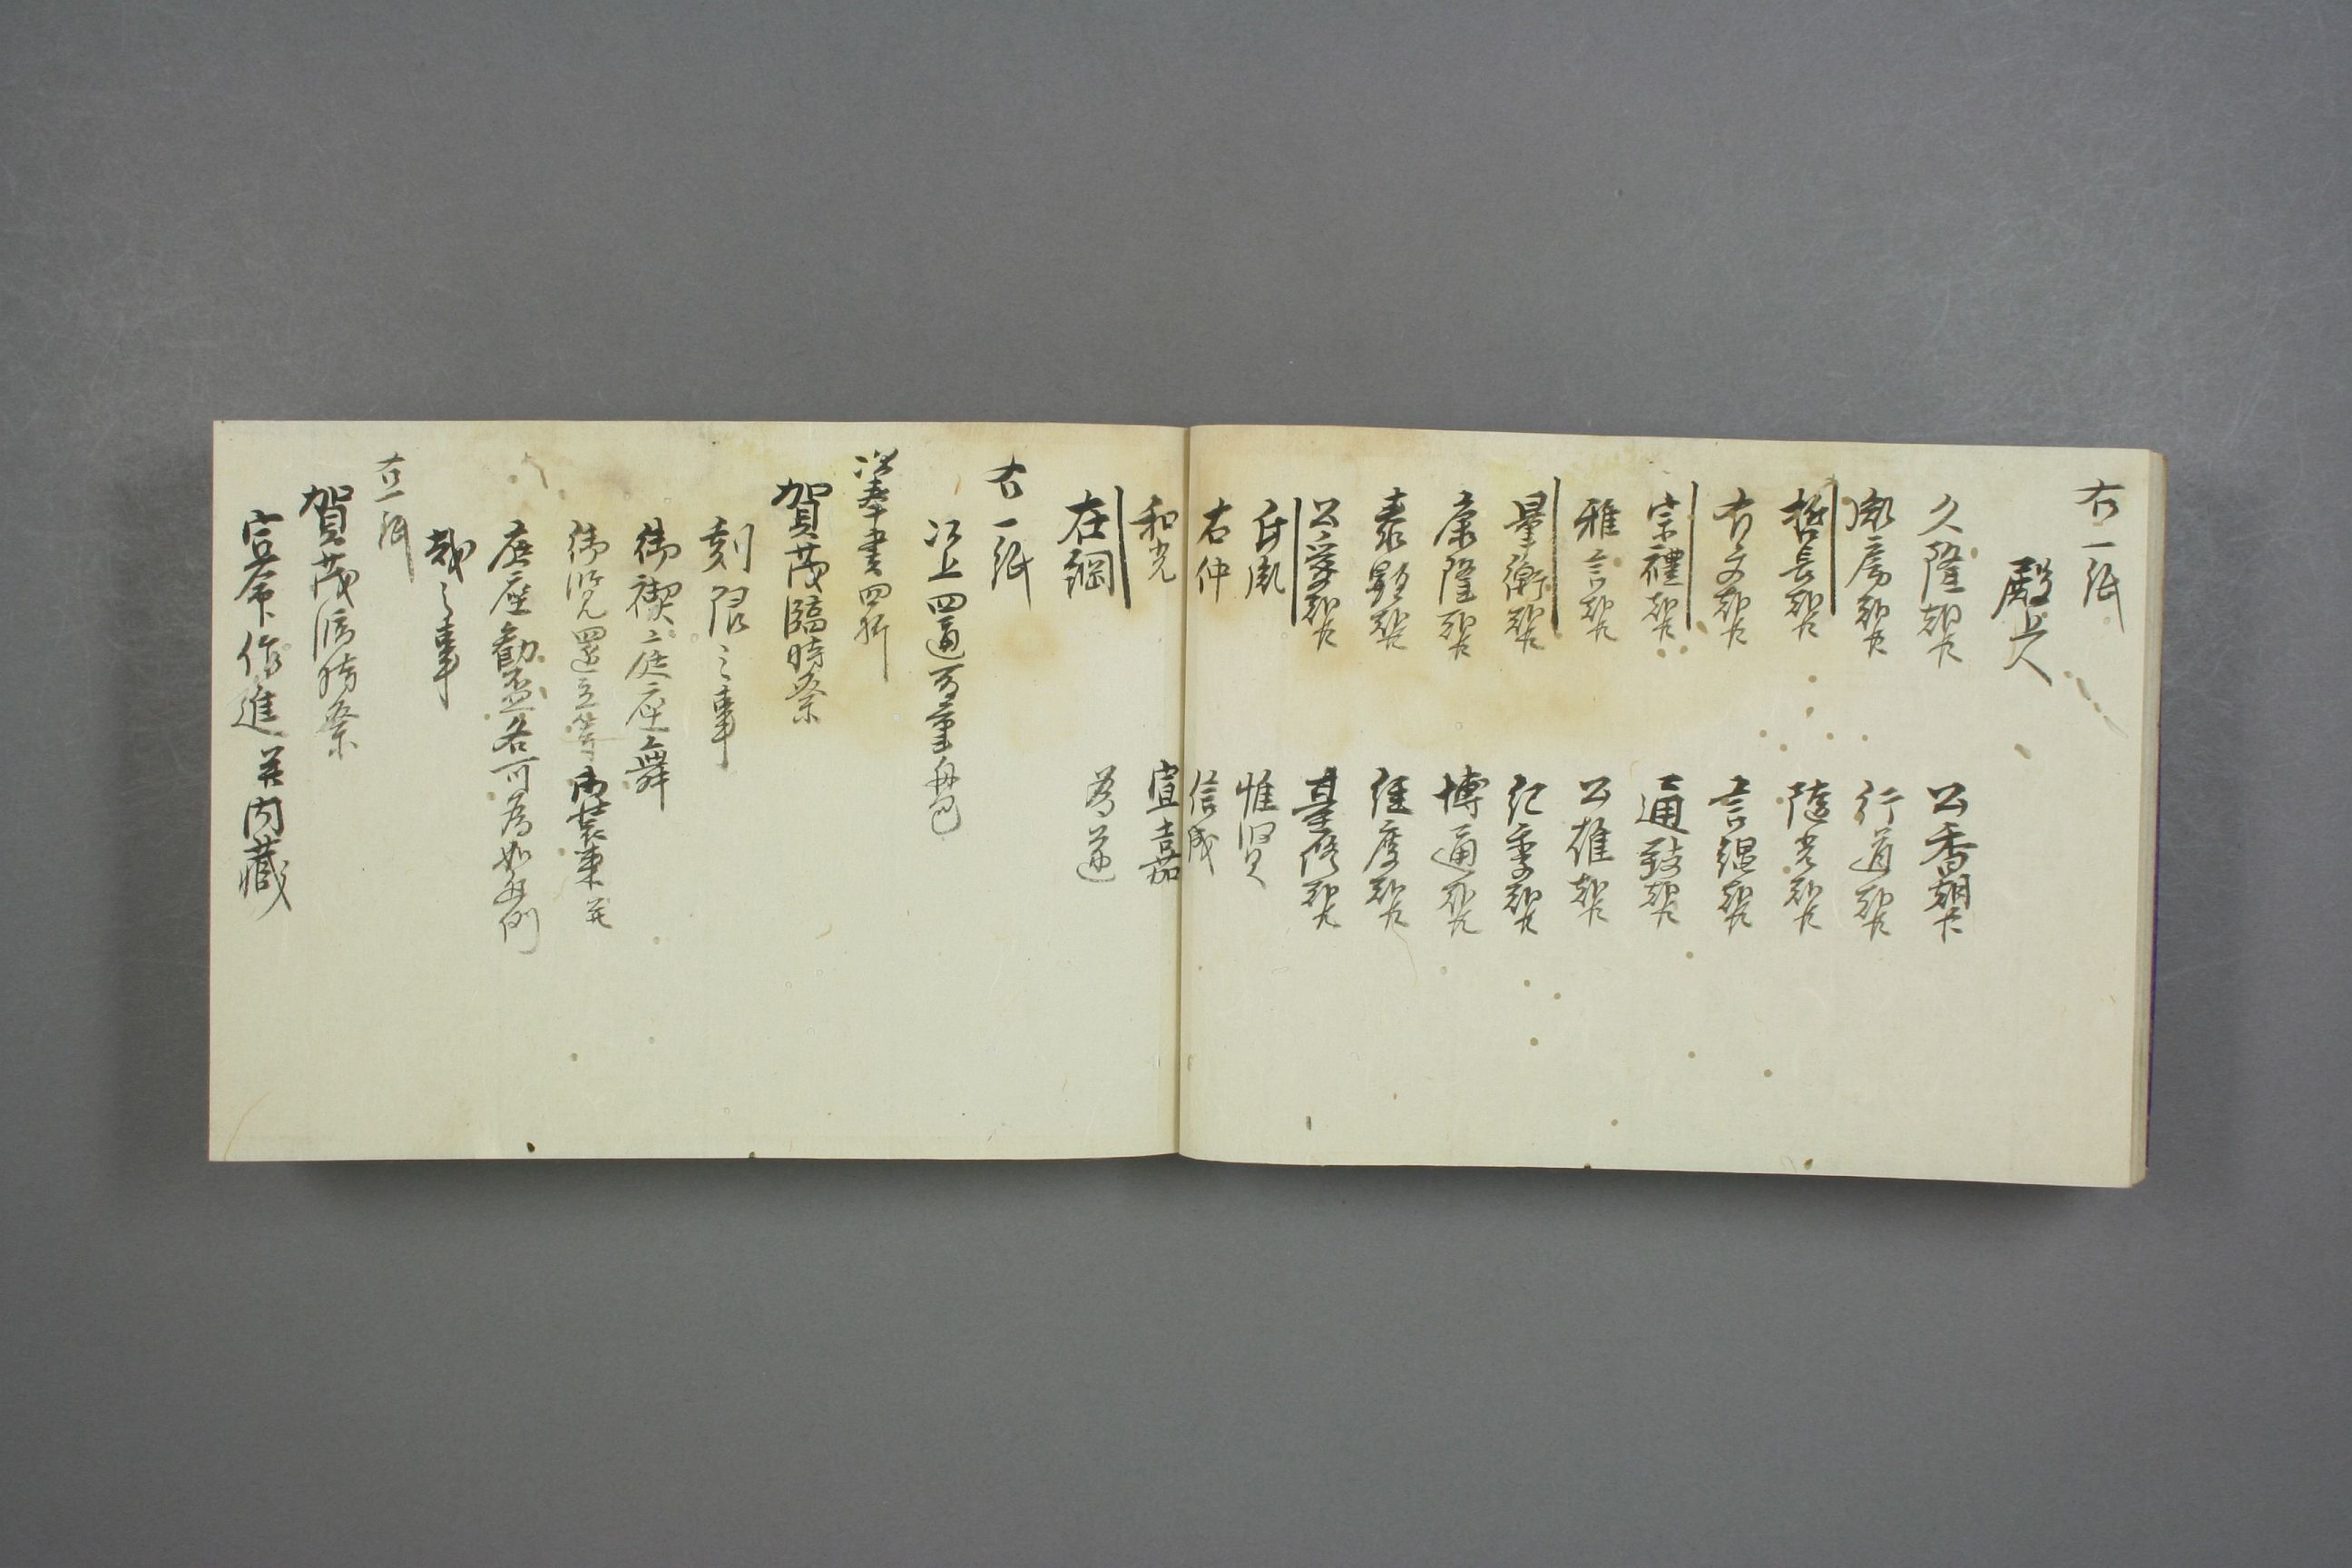 右一紙
殿上人
久隆朝臣　公香朝臣
胤房朝臣　行道朝臣
哲長朝臣　隨光朝臣
有文朝臣　言繩朝臣
宗禮朝臣　通致朝臣
雅言朝臣　公雄朝臣
量衡朝臣　紀季朝臣
康隆朝臣　博通朝臣
泰顕朝臣　経度朝臣
公愛朝臣　基脩朝臣
氏胤　惟賢
右仲　信成
和光　宣嘉
在綱　為遂
右一紙
以上四通
奉書四折
賀茂臨時祭
刻限之事
御禊庭座舞
御覧還立等御装束并
庭座勧盃各可為如例
哉之事
右一紙
賀茂臨時祭
宣命作進并内蔵